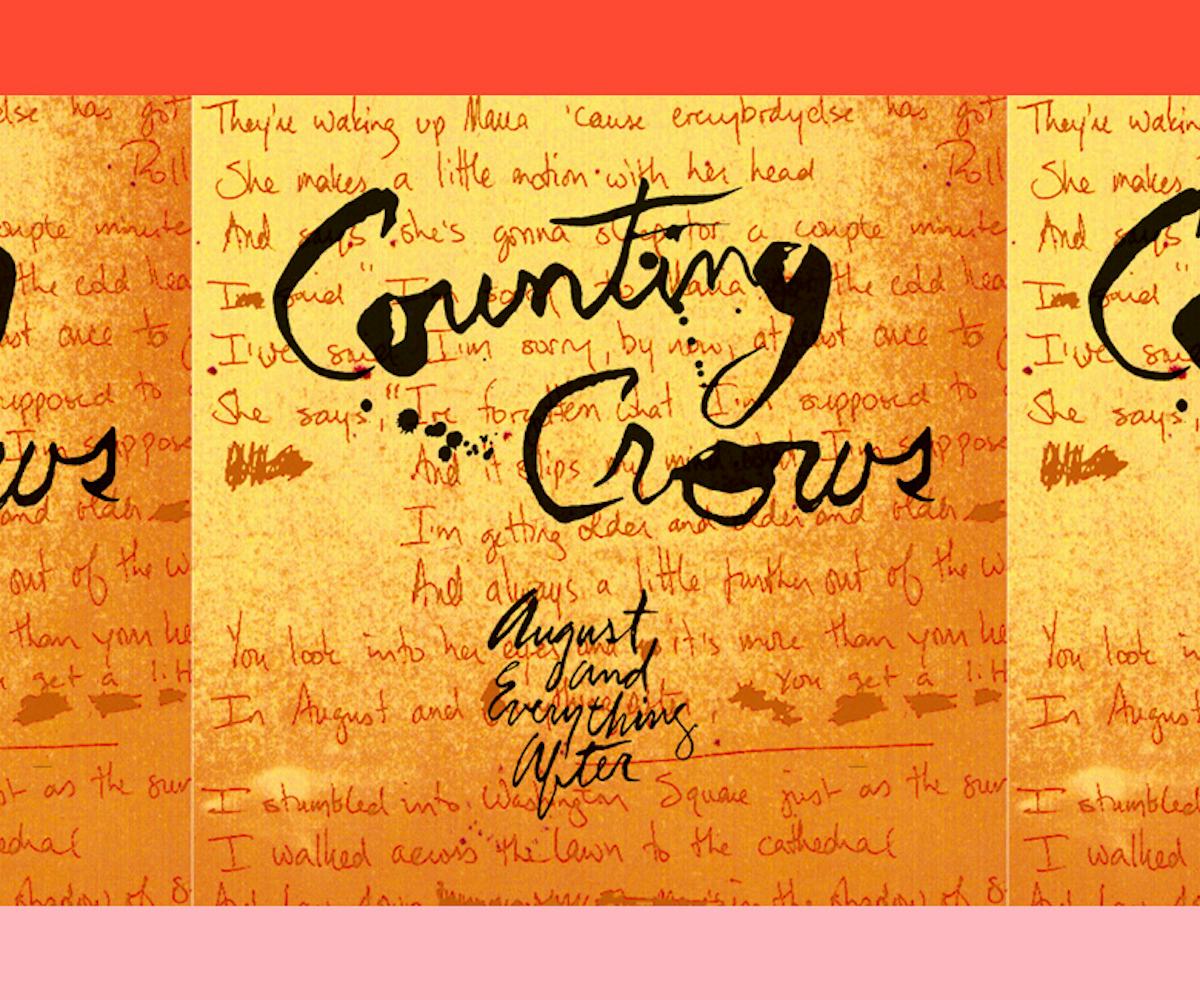 They're waking up Maria 'cause everybodyelse has got
Roll
She makes a little motion with her head
And says she's gonna a couple minute
I'm said "I'm sorry to Maria the cold hea
I've said I'm sorry, by now, at least once to
She says, "I've forgotten what I'm supposed to
And it slips my mind about I suppose
I'm getting older and older and older
And always a little further out of the w
You look into her eyes and it's more than your he
you get a litt
In August and
I stumbled into Washington Square just as the sun
I walked across the lawn to the cathedral
And lay down in the shadow of S
Counting
Crows
August
and
Everything
After